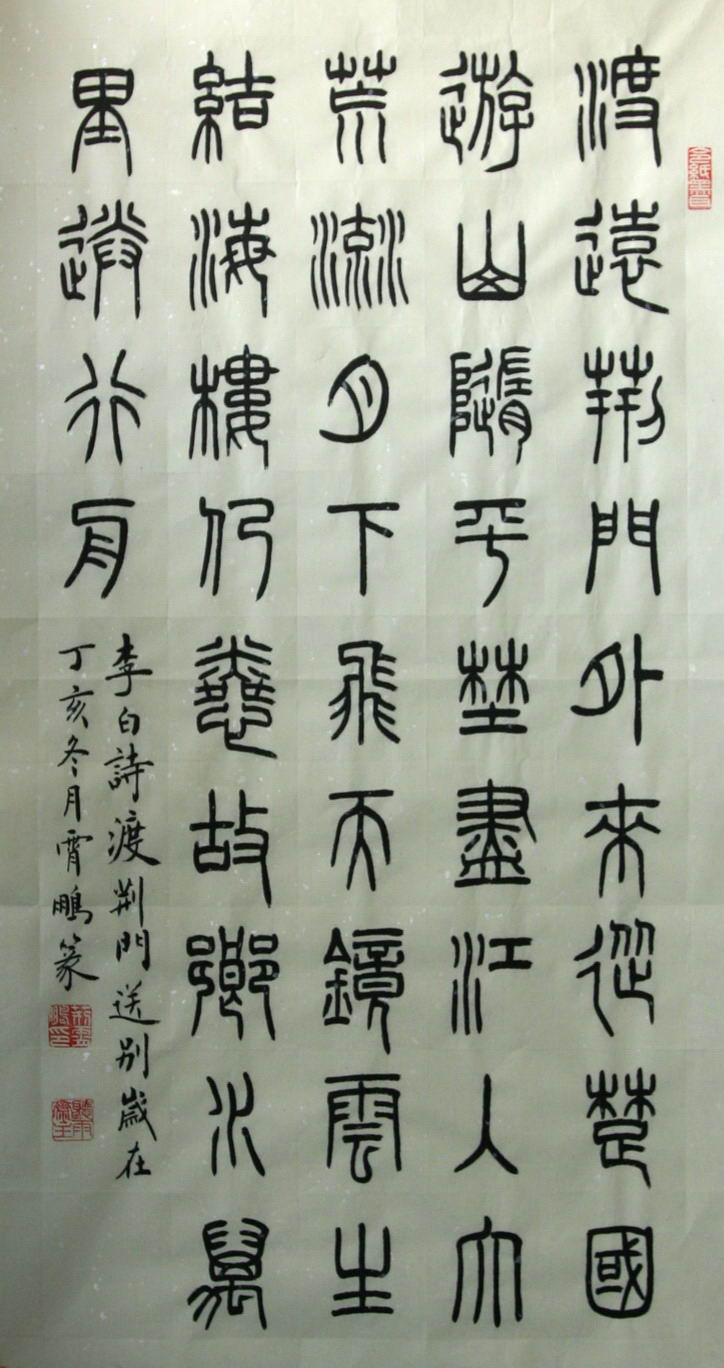 渡遠荊門外來從楚國
遊山隨平埜盡江入大
荒流月下飛天鏡雲生
結海樓仍憐故鄉水萬
里送行舟
李白詩渡荊門送別歲在
丁亥冬月霄鵬篆